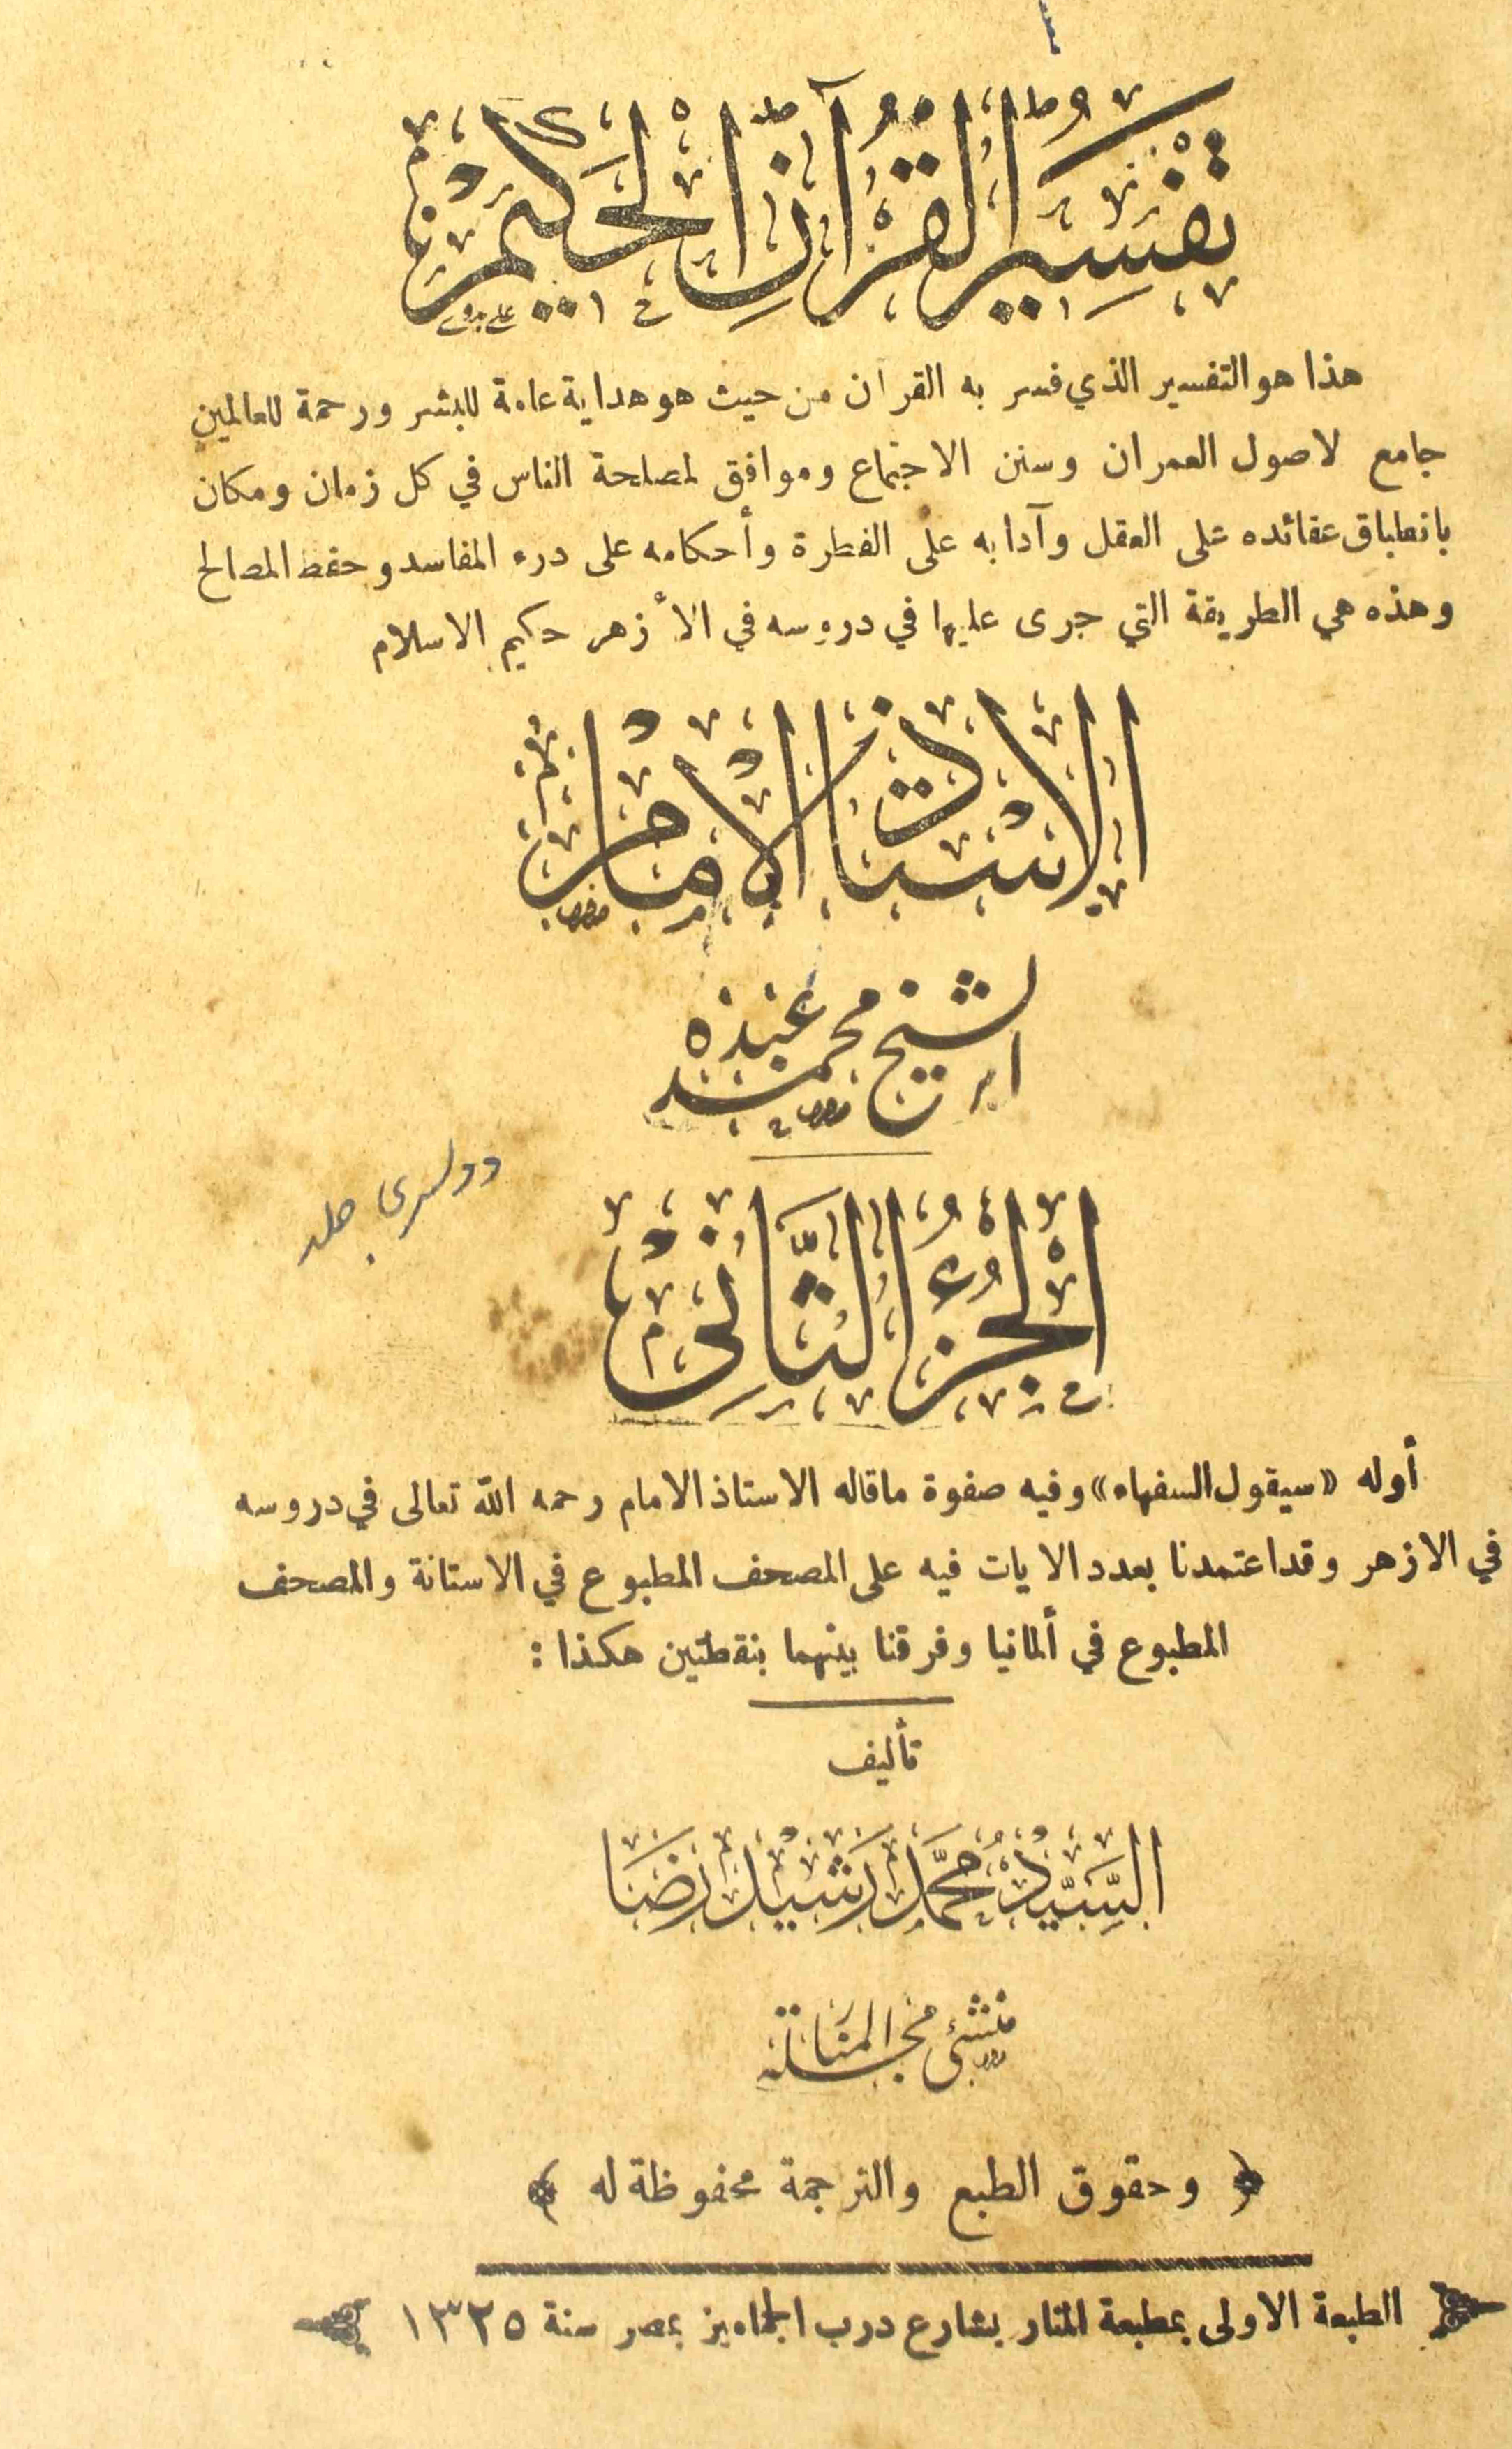 تَفْسِيرُ الْقُرْآنِ الْحَكِيمِ
هذا هو التفسير الذي فسر به القرآن من حيث هو هداية عامة للبشر ورحمة للعالمين
جامع لاصول العمران وسنن الاجتماع وموافق لمصلحة الناس في كل زمان ومكان
بانطباق عقائده على العقل وآدابه على الفطرة وأحكامه على درء المفاسد وحفظ المصالح
وهذه هي الطريقة التي جرى عليها في دروسه في الأزهر حكيم الاسلام
الاستاذ الامام
الشيخ محمد عبده
الْجُزْءُ الثَّانِي
أوله «سيقول السفهاء» وفيه صفوة ماقاله الاستاذ الامام رحمه الله تعالى في دروسه
في الازهر وقد اعتمدنا بعدد الايات فيه على المصحف المطبوع في الاستانة والمصحف
المطبوع في ألمانيا وفرقنا بينهما بنقطتين هكذا :
تأليف
السَّيِّد مُحَمَّد رَشِيد رِضَا
منشئ مجلة المنار
﴿ وحقوق الطبع والترجمة محفوظة له ﴾
الطبعة الاولى بمطبعة المنار بشارع درب الجماميز بمصر سنة ١٣٢٥